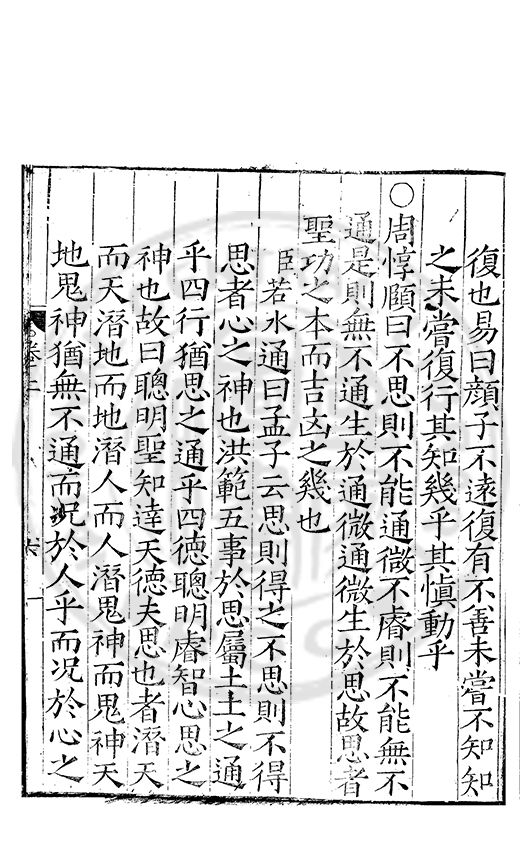 復也易曰顔子不遠復有不善未嘗不知知
之未嘗復行其知幾乎其慎動乎
○周惇頤曰不思則不能通微不睿則不能無不
通是則無不通生於通微通微生於思故思者
聖功之本而吉凶之幾也
臣若水通曰孟子云思則得之不思則不得
思者心之神也洪範五事於思屬土土之通
乎四行猶思之通乎四徳聰明睿智心思之
神也故曰聰明聖知達天徳夫思也者潛天
而天潛地而地潛人而人潛鬼神而鬼神天
地鬼神猶無不通而况於人乎而况於心之
卷十二
六